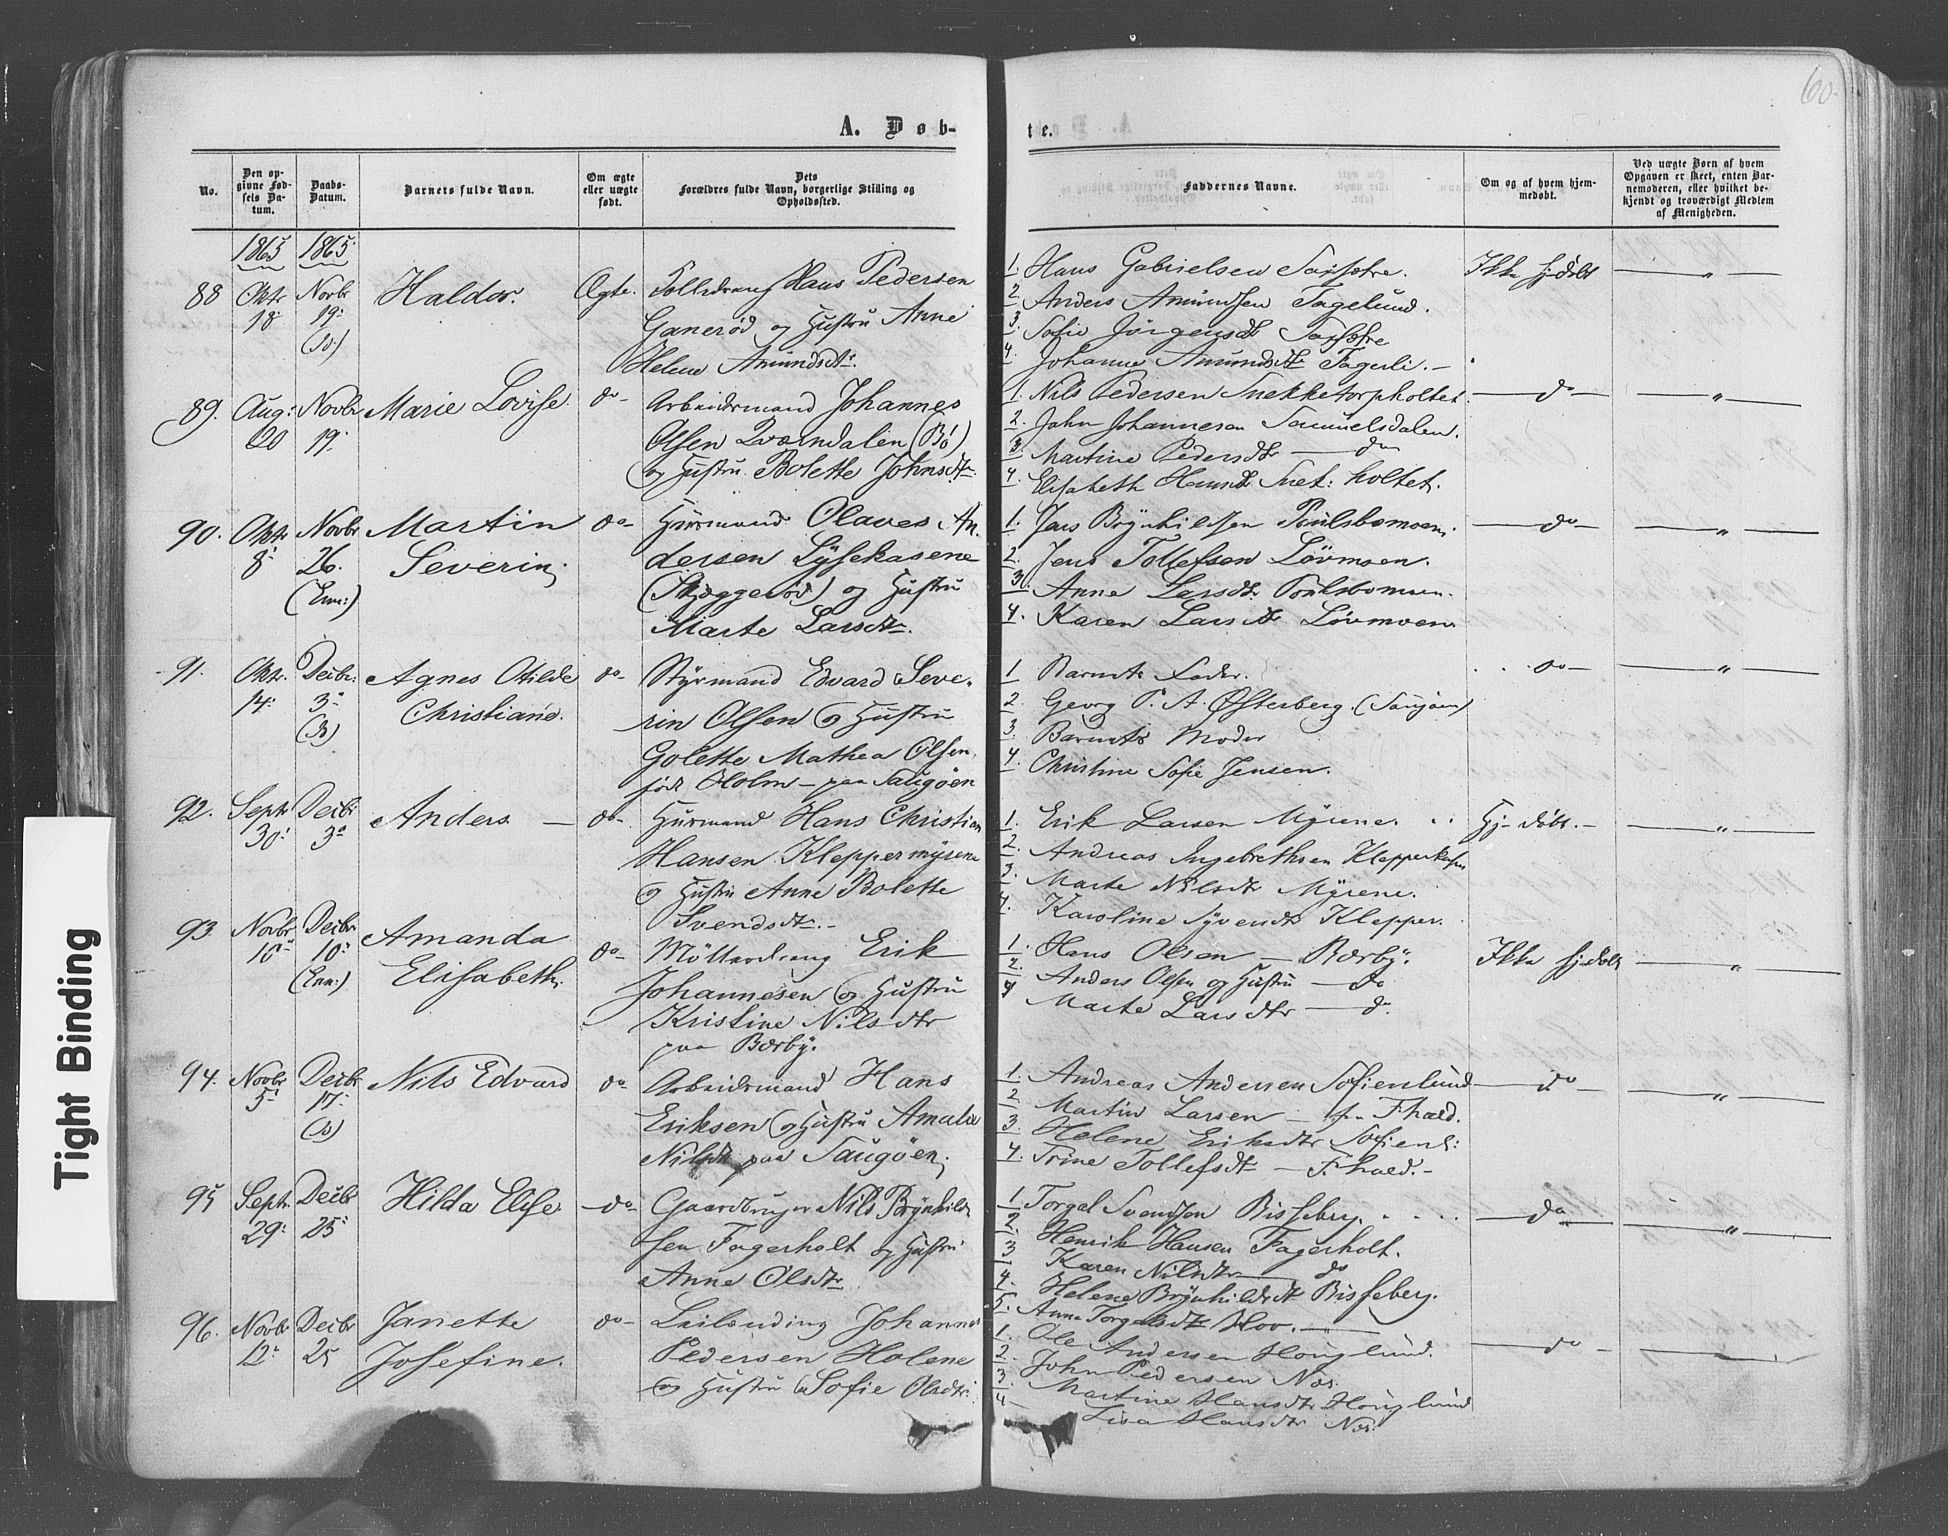 60.
A. Døb-
te.
No.
Den op-
givne Fød-
sels Da-
tum.
Daabs-
Datum.
Barnets fulde Navn.
Om ægte
eller uægte
født.
Dets
Forældres fulde Navn, borgerlige Stilling og
Opholdssted.
Faddernes Navne.
Om og af hvem hjem-
medøbt.
Ved uægte Børn af hvem
Opgaven er skeet, enten Bar-
nemoderen, eller hvilket be-
kjendt og troværdigt Medlem
af Menigheden.
1865 1865
88 Oktr 18 Novbr 19 Haldor. Ægte.
Hans Pedersen
Ganerød og Hustru Anne
Helene Amundsdtr.
1. Hans Gabrielsen
2. Anders Amundsen Fagelund.
3. Sofie Jørgensdtr
4. Johanne Amundsdtr Fagerli.
Ikke hj.døbt — „ —
89. Aug: 20 Novbr 19. Marie Lovise. do-
Arbeidsmand Johannes
Olsen Qværndalen (Bö)
og Hustru Bolette Johnsdtr.
1. Nils Pedersen Snekketorpholtet.
2. John Johannesen Samuelsdalen.
3. Martine Pedersdtr — do
4. Elisabeth Hansdtr Snet: holtet.
— do — — „ —
90. Oktr 8 Novbr 26. (Enn:) Martin
Severin. do-
Husmand Olaves An-
dersen Lysekasene
(Skjæggerød) og Hustru
Marte Larsdtr.
1. Lars Brynhildsen Poulsbomoen.
2. Jens Tollefsen Løvmoen.
3. Anne Larsdtr Poulsbomoen.
4. Karen Larsdtr Løvmoen.
— do — — „ —
91. Oktr. 14. Decbr: 3 Agnes Otilde
Christiane. do-
Styrmand Edvard Seve-
rin Olsen og Hustru
Golette Mathea Olsen,
født Holm — paa Saugøen
1 Barnets Fader.
2. Georg P. A. Østerberg. (Saugøen)
3. Barnets Moder
4. Christine Sofie Jensen.
do — — „ —
92. Septr 30. Decbr 3 Anders. — do-
Husmand Hans Christian
Hansen Kleppermyrene
og Hustru Anne Bolette
Svendsdtr.-
1. Erik Larsen Myrene.
2. Andreas Ingebrethsen
3. Marte Nilsdtr Myrene.
4. Karoline Syvendtr Klepper.
Hj-døbt. — — „ —
93. Novbr 10 Decbr 10 (Enn:) Amanda
Elisabeth. do-
Møllerdreng Erik
Johannesen og Hustru
Kristine Nilsdtr
paa Bærby.
1. Hans Olsen — Bærby.
2. Anders Olsen og Hustru — do
4 Marte Larsdtr — do.
Ikke hj.døbt — „ —
94. Novbr 5 Decbr 17. Nils Edvard do
Arbeidsmand Hans
Eriksen og Hustru Amalia
Nilsdtr paa Saugøen.
1. Andreas Andersen Sofienlund
2. Martin Larsen — Fhald.
3. Helene Eriksdtr Sofienl:
4. Trine Tollefsdtr — F.hald.-
— do — — „ —
95 Septr. 29. Decbr 25 Hilda Elise. —do-
Gaardbruger Nils Brynhild-
sen Fagerholt og Hustru
Anne Olsdtr
1. Torgal Svendsen Bisseberg.
2. Henrik Hansen Fagerholt.
3 Karen Nilsdtr — do
4. Helene Brynhildsdtr Bisseberg.
5. Anne Torgalsdtr Hov.
— do — — „ —
96. Novbr 12. Decbr 25 Janette
Josefine. do-
Leilænding Johannes
Pedersen Holene
og Hustru Sofie Olsdtr.
1. Ole Andersen Houglund.
2. John Pedersen Næs.
3. Martine Hansdtr Houglund
4 Lisa Hansdtr Næs.
— do —
Tight Binding